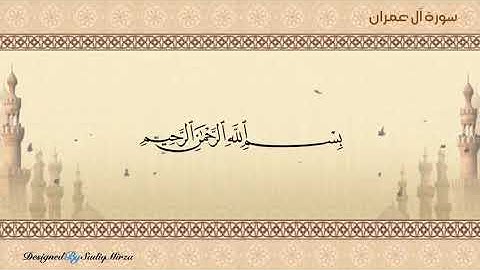 سورة آل عمران
بِسْمِ ٱللَّهِ ٱلرَّحْمَٰنِ ٱلرَّحِيمِ
DesignedBySadiqMirza